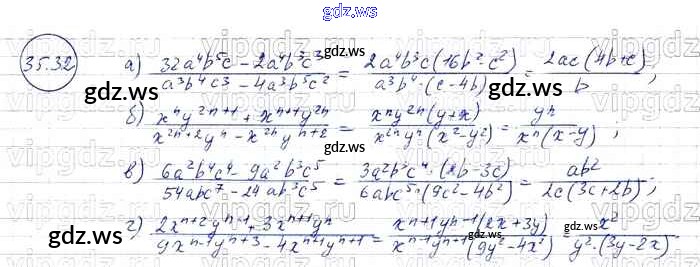 gdz.ws
35.32 а) (32a⁴b⁵c - 2a⁴b³c³)/(a³b⁴c3 - 4a³b⁵c²) = (2a⁴b³c(16b² - c²))/(a³b⁴·(c - 4b)) = (2ac(4b+c))/b;
б) (xⁿy²ⁿ⁺¹ + xⁿ⁺¹y²ⁿ)/(x²ⁿ⁺²yⁿ - x²ⁿyⁿ⁺²) = (xⁿy²ⁿ(y+x))/(x²ⁿyⁿ(x² - y²)) = yⁿ/(xⁿ(x - y));
в) (6a²b⁴c⁴ - 9a²b³c⁵)/(54abc⁷ - 24ab³c⁵) = (3a²b³c⁴·(2b - 3c))/(6abc⁵·(9c² - 4b²)) = ab²/(2c(3c+2b));
г) (2xⁿ⁺²yⁿ⁻¹ + 3xⁿ⁺¹yⁿ)/(9xⁿ⁻¹yⁿ⁺³ - 4xⁿ⁺¹yⁿ⁺¹) = (xⁿ⁺¹yⁿ⁻¹(2x + 3y))/(xⁿ⁻¹yⁿ⁺¹(9y² - 4x²)) = x²/(y²·(3y - 2x))